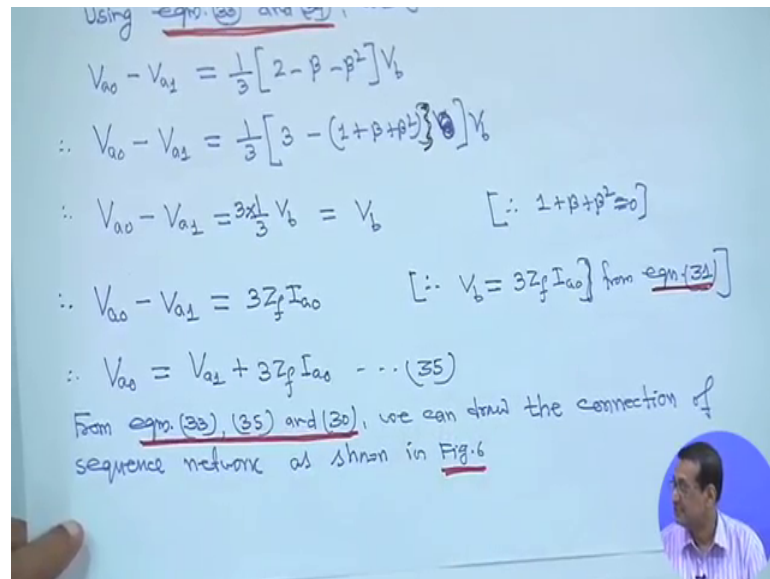 Using eqn. (33) and
Va0 - Va1 = 1/3 [2 - β - β²] Vb
∴ Va0 - Va1 = 1/3 [3 - (1 + β + β²)] Vb
∴ Va0 - Va1 = 3×1/3 Vb = Vb [∴ 1 + β + β² = 0]
∴ Va0 - Va1 = 3Zf Ia0 [∴ Vb = 3Zf Ia0} from eqn. (31)]
∴ Va0 = Va1 + 3Zf Ia0 --- (35)
From eqn. (33), (35) and (30), we can draw the connection of
sequence network as shown in Fig. 6